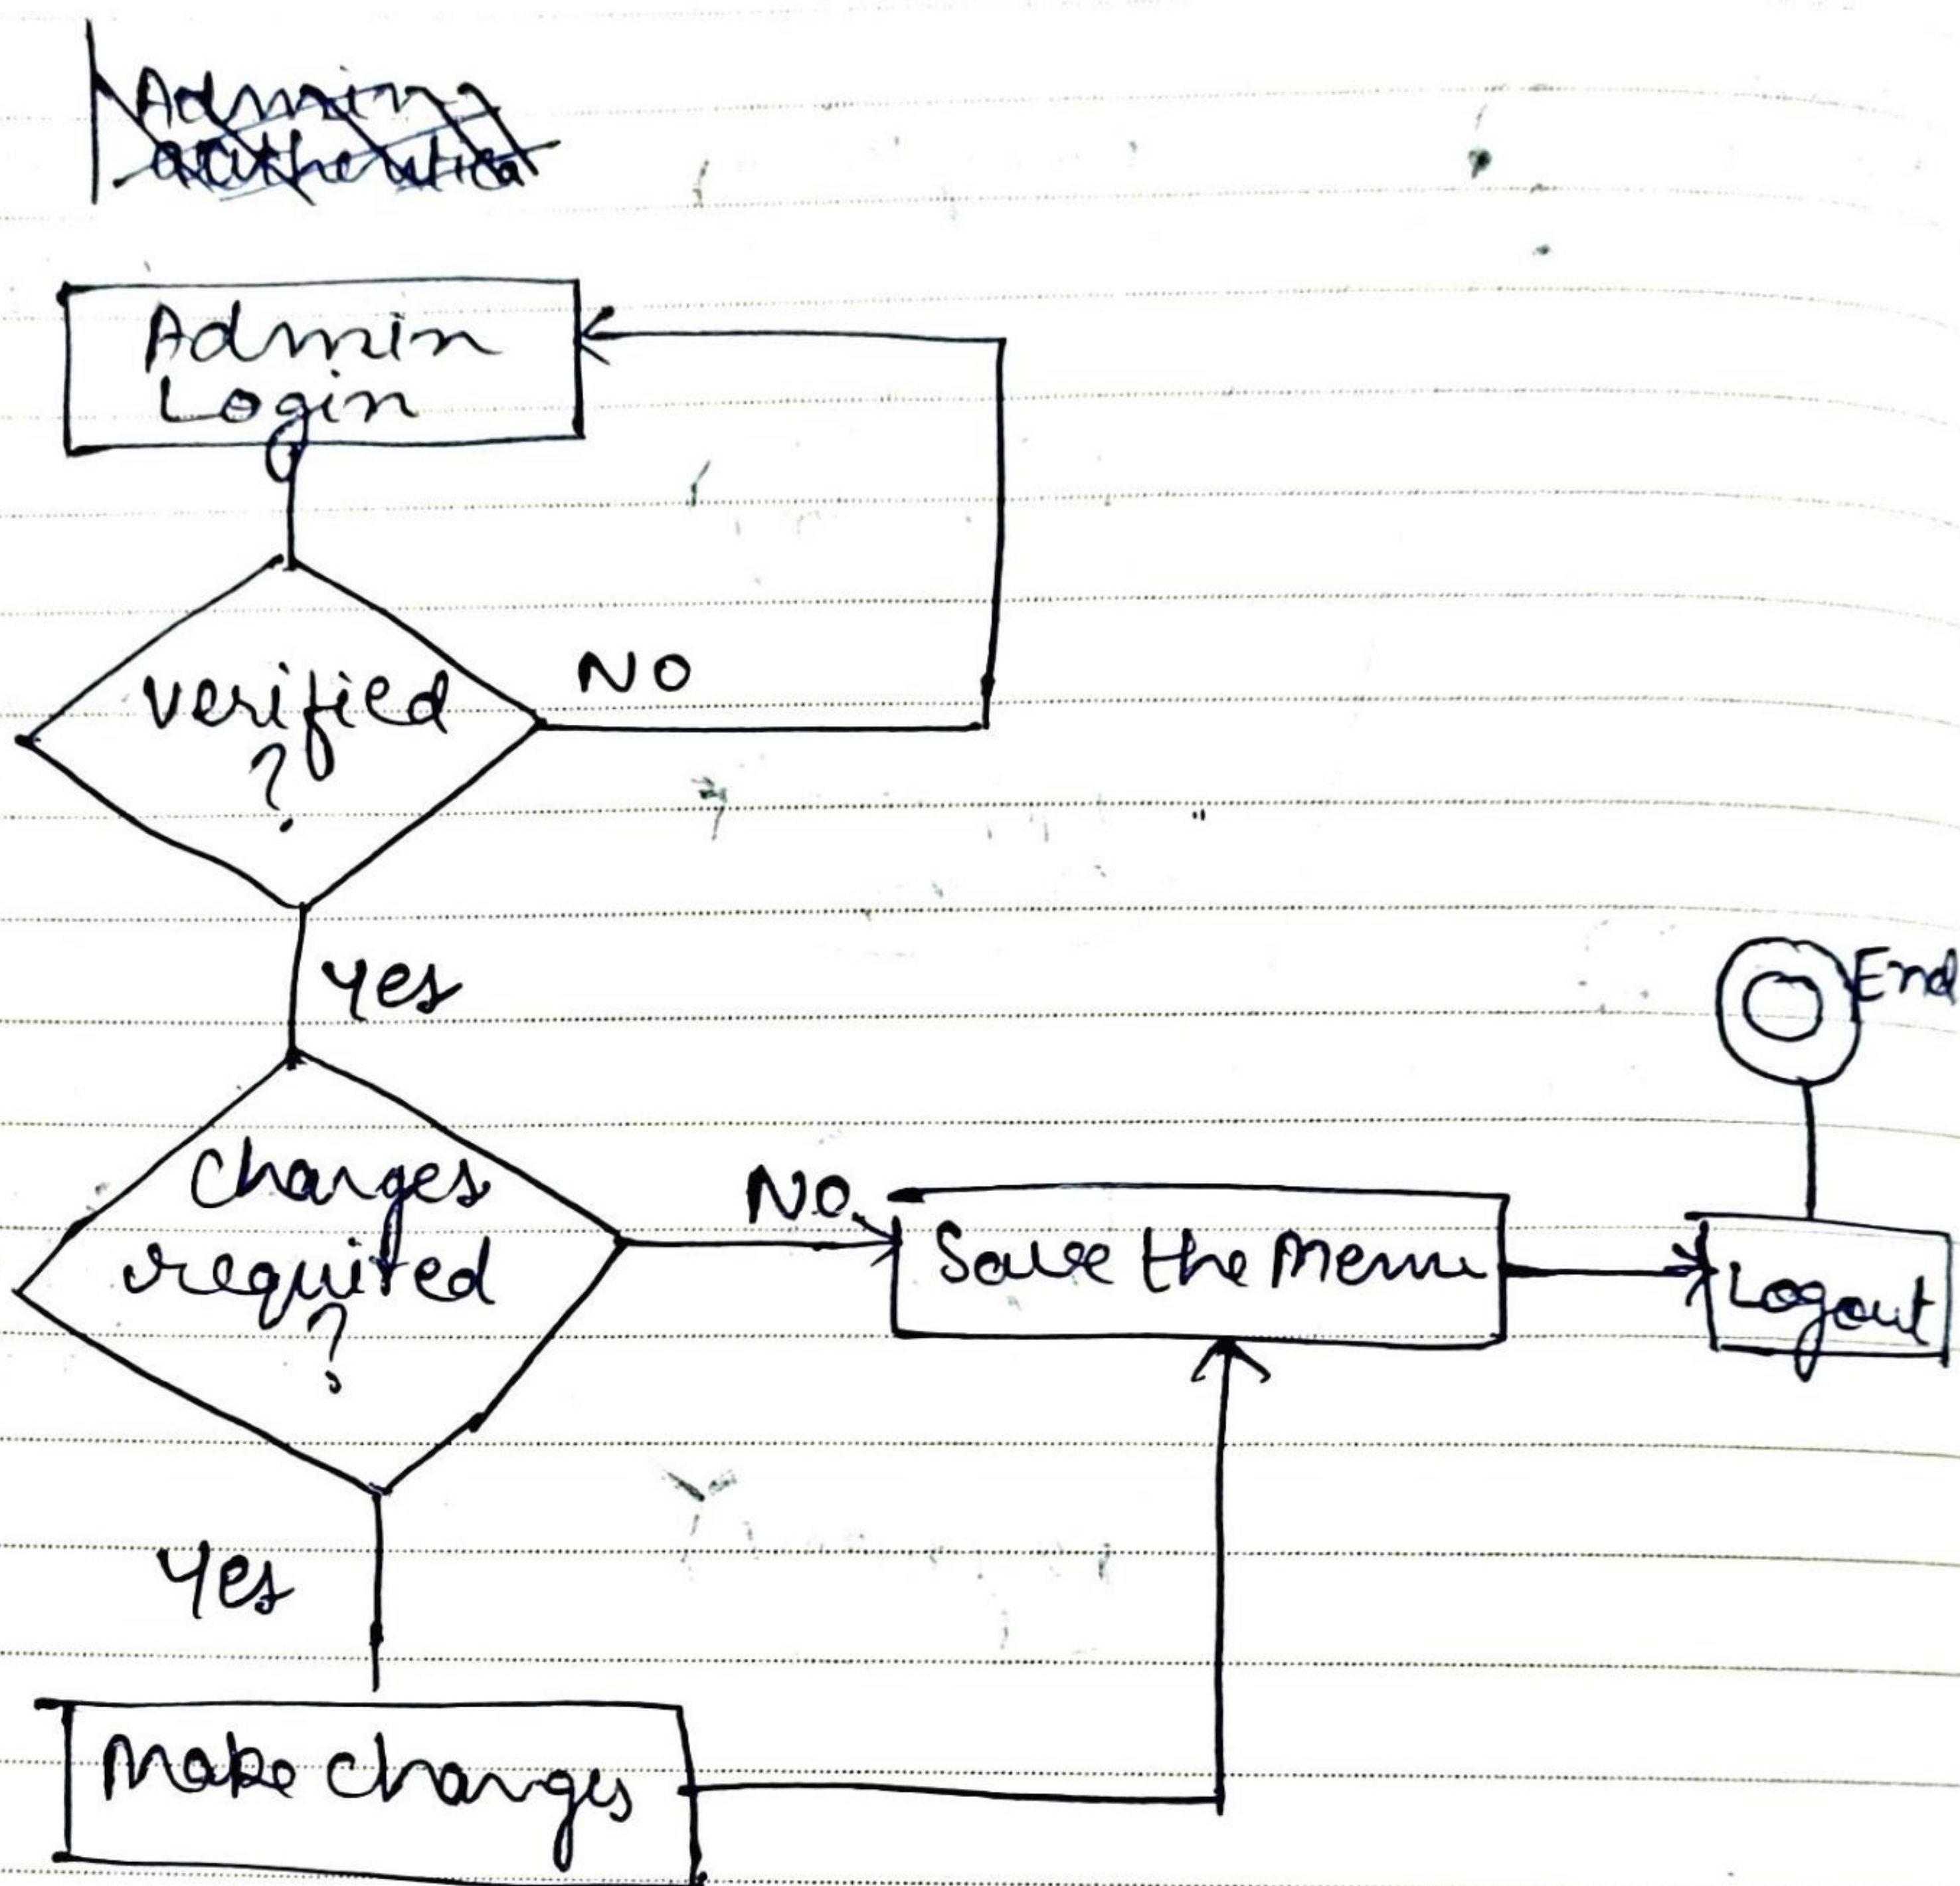 Admin
authentica
Admin
Login
NO
verified
?
Yes
End
Changes
required
?
NO
Save the Menu
Logout
Yes
Make changes